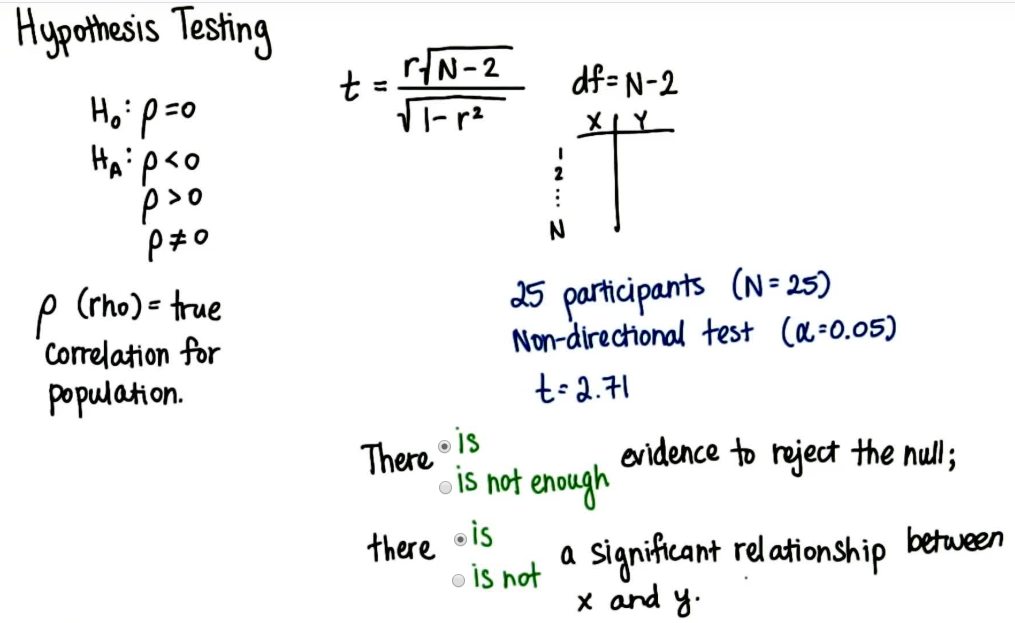 Hypothesis Testing
t = r√N-2 / √1-r²
df = N-2
H₀: ρ=0
H_A: ρ<0
ρ>0
ρ≠0
X Y
1
2
⋮
N
ρ (rho) = true
correlation for
population.
25 participants (N=25)
Non-directional test (α=0.05)
t=2.71
There is
is not enough
evidence to reject the null;
there is
is not
a significant relationship between
x and y.